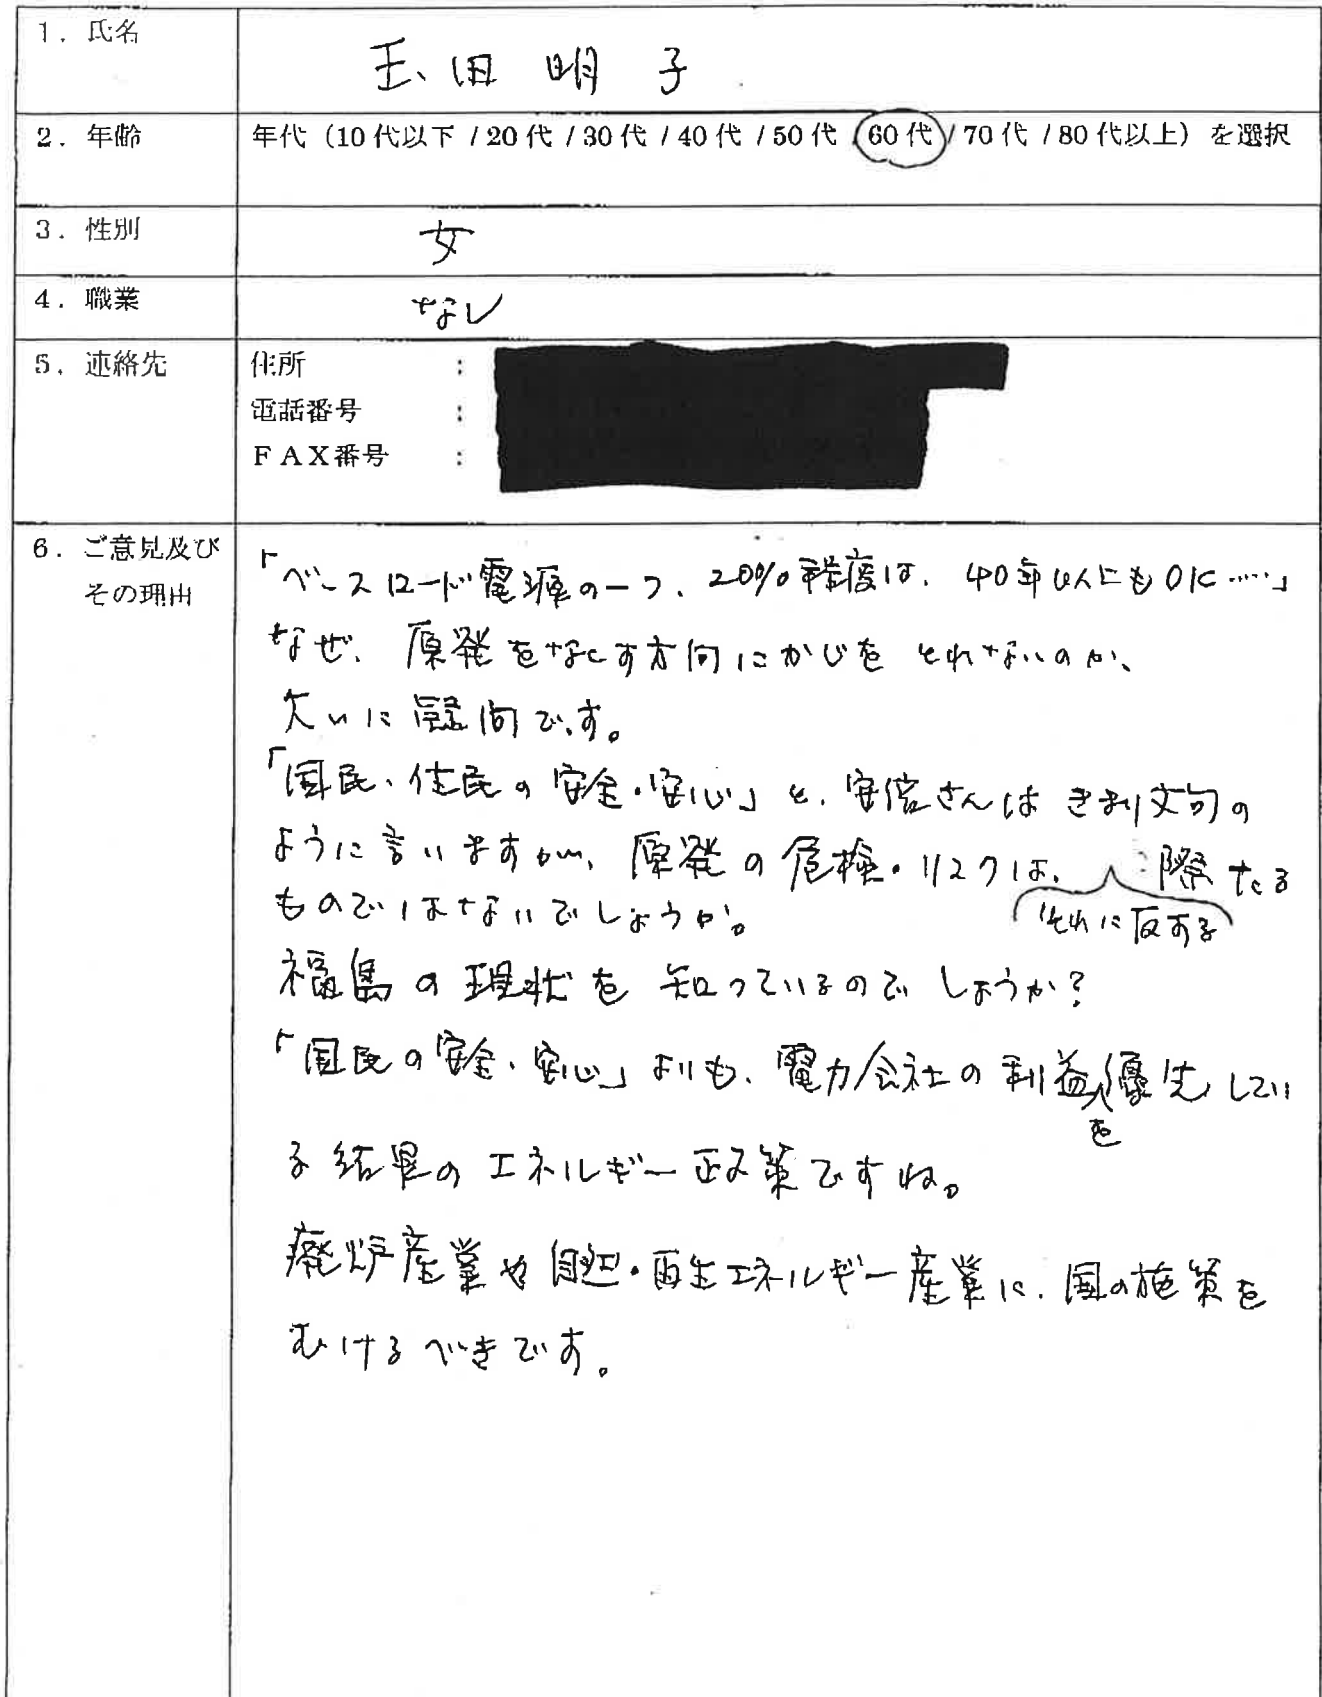 1. 氏名
玉田 明子
2. 年齢
年代(10代以下 / 20代 / 30代 / 40代 / 50代 / 60代 / 70代 / 80代以上)を選択
3. 性別
女
4. 職業
なし
5. 連絡先
住所 :
電話番号 :
FAX番号 :
6. ご意見及び
その理由
「ベースロード電源の一つ、20%程度は、40年以上にもOK……」
なぜ、原発をなくす方向にかじをとれないのか、
大いに疑問です。
「国民・住民の安全・安心」と、安倍さんはきまり文句の
ように言いますが、原発の危検・リスクは、それに反する際たる
ものではないでしょうか。
福島の現状を知っているのでしょうか?
「国民の安全・安心」よりも、電力会社の利益を優先してい
る結果のエネルギー政策ですね。
廃炉産業や自然・再生エネルギー産業に、国の施策を
むけるべきです。